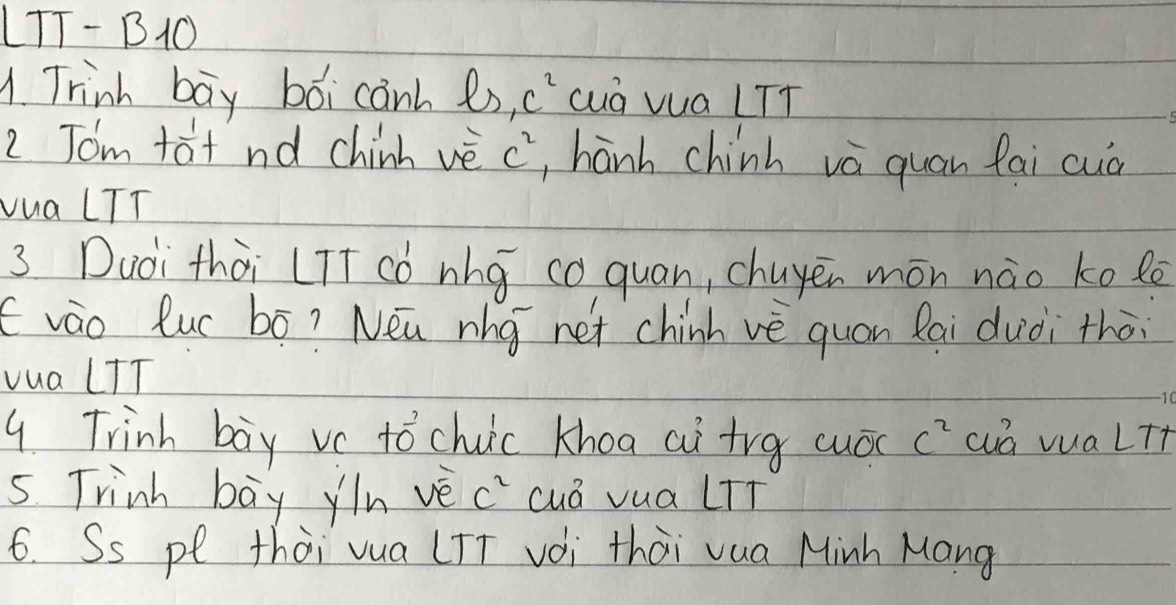 LTT - B10
1. Trình bày bối cảnh ls, c² của vua LTT
2 Tóm tắt nd chính về c², hành chính và quan lại của
vua LTT
3 Dưới thời LTT có nhg̃ cơ quan, chuyên môn nào ko lệ
€ vào lục bộ? Nêu nhg̃ nét chính về quan lại dưới thời
vua LTT
4 Trình bày vc tổ chức khoa cử trg cuộc c² của vua LTT
5. Trình bày ýln về c² của vua LTT
6. Ss pl thời vua LTT với thời vua Minh Mạng
5
10